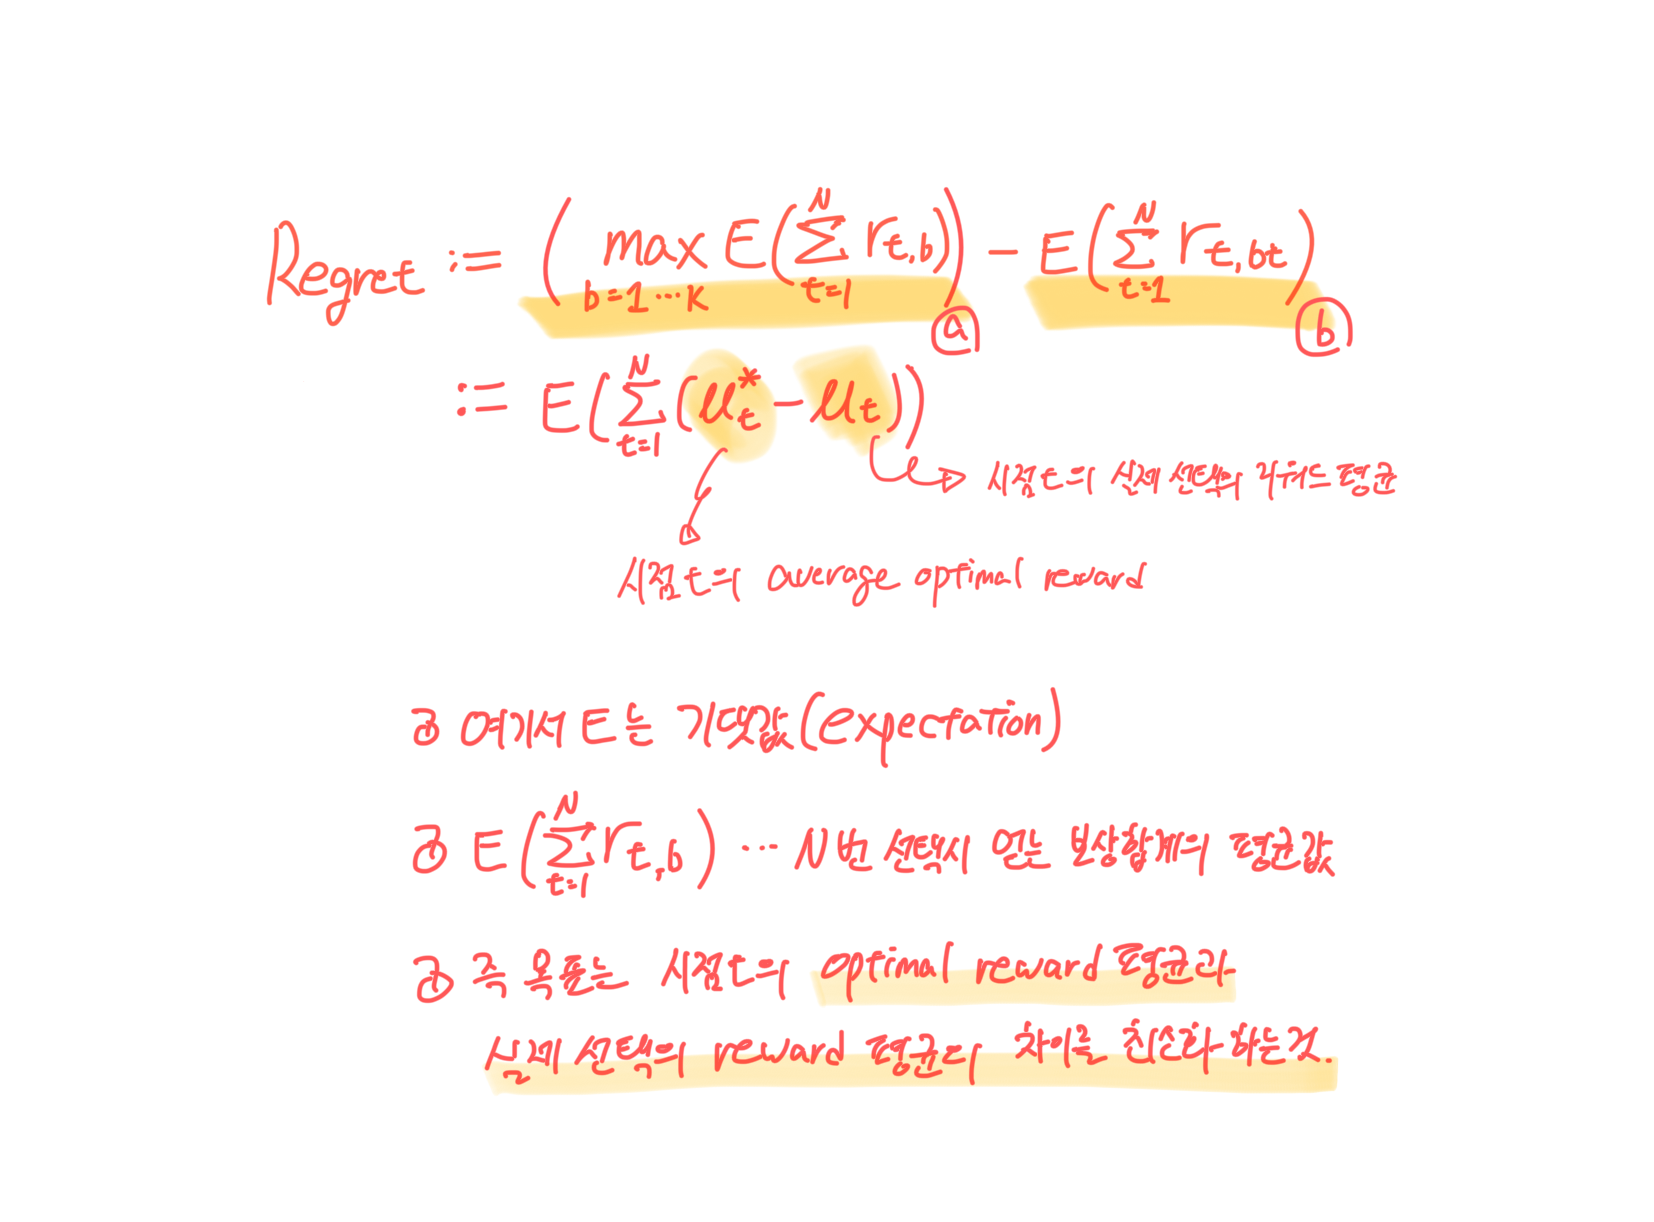 Regret := ( max_{b=1…K} E( Σ_{t=1}^{N} r_{t,b} ) ) ⓐ - E( Σ_{t=1}^{N} r_{t,bt} ) ⓑ
:= E( Σ_{t=1}^{N} ( μ_t^* - μ_t ) )
시점t의 실제 선택의 리워드 평균
시점t의 average optimal reward
여기서 E는 기댓값(expectation)
E( Σ_{t=1}^{N} r_{t,b} ) … N번 선택시 얻는 보상합계의 평균값
즉 목표는 시점t의 optimal reward 평균과
실제 선택의 reward 평균의 차이를 최소화 하는것.